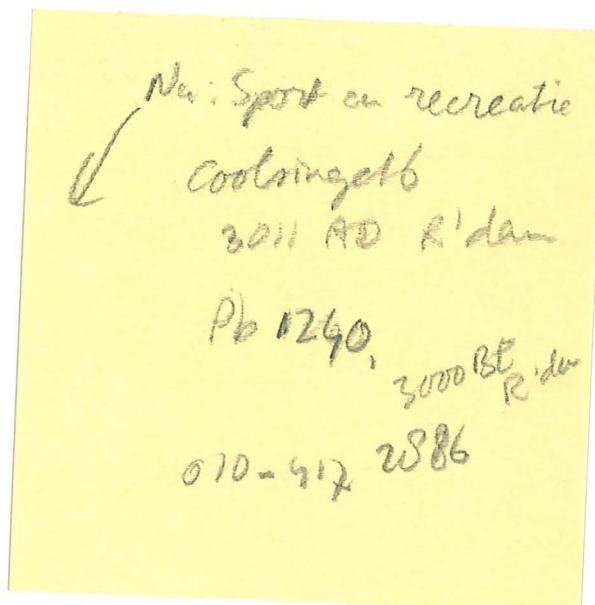 Nu: Sport en recreatie
Coolsingel 6
3011 AD R'dam
Pb 1240,
3000 BE R'dam
010-417 2886